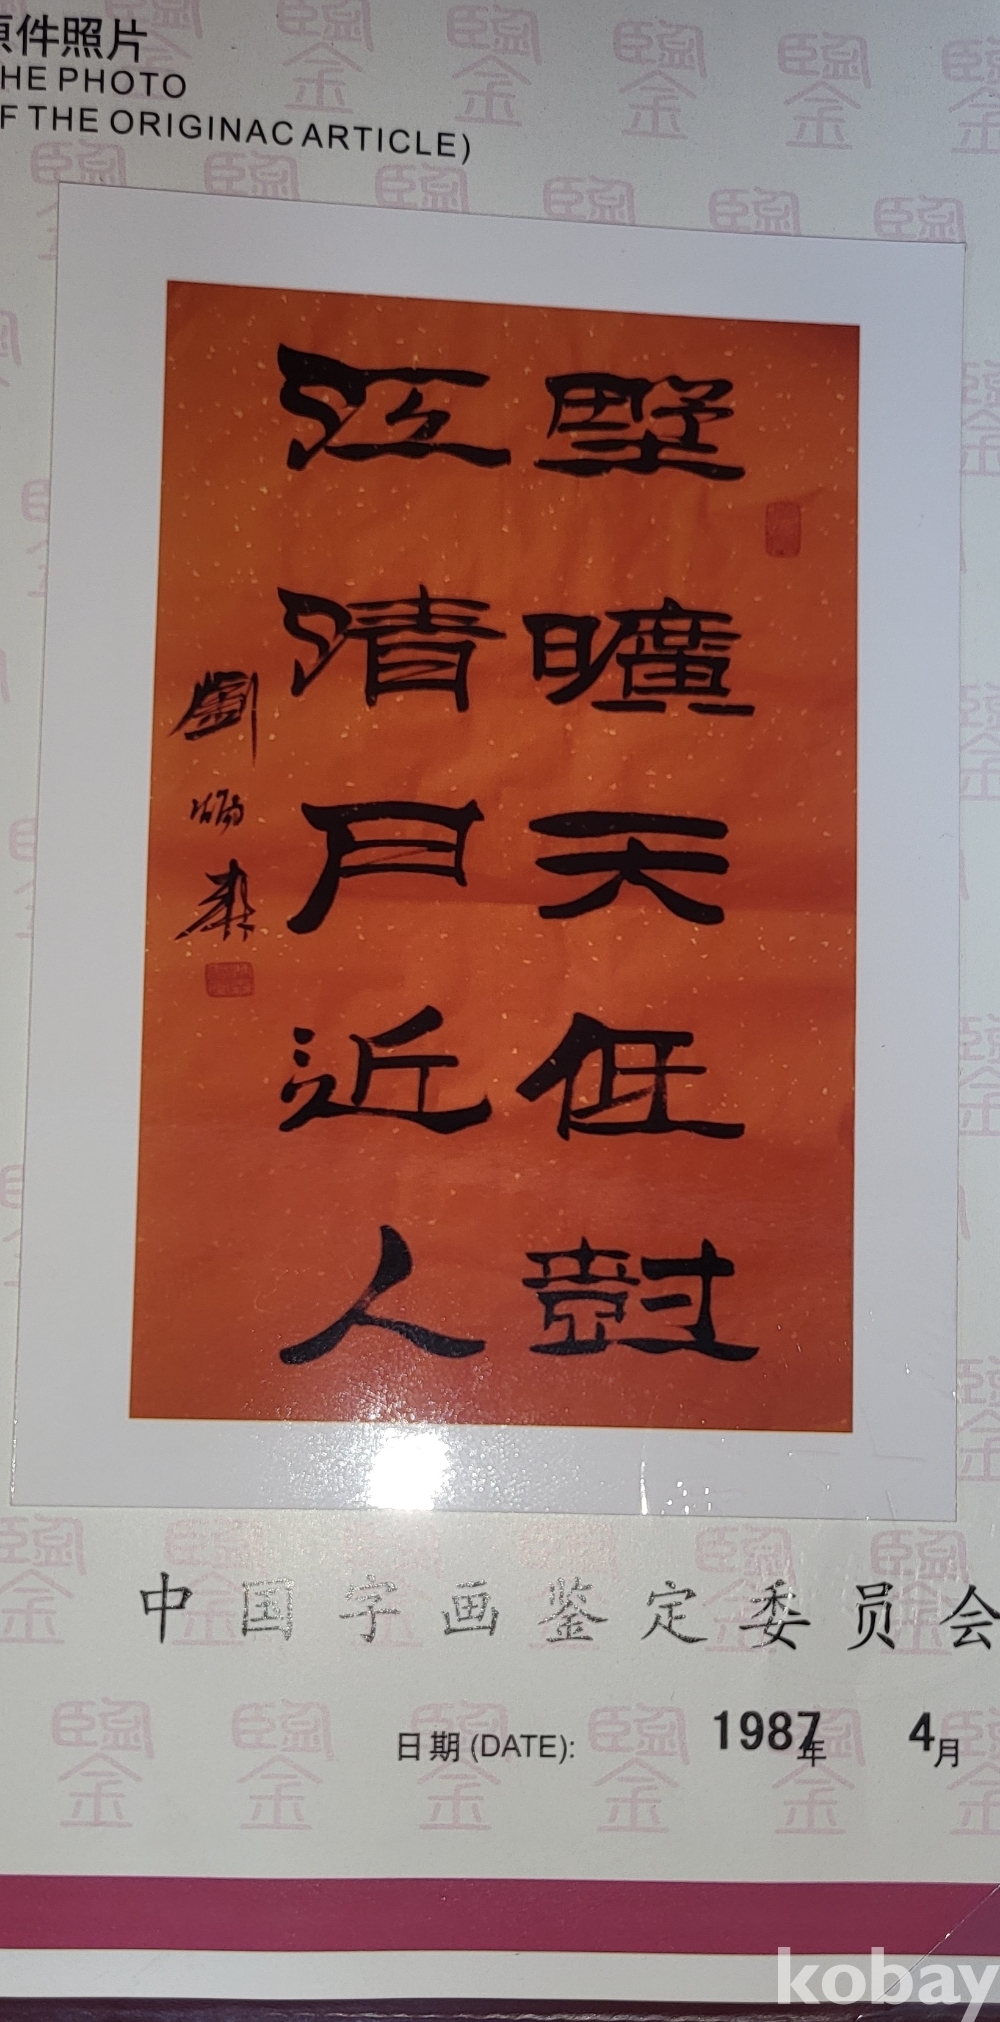 原件照片
HE PHOTO
F THE ORIGINAC ARTICLE)
野曠天低尌
江清月近人
劉炳森
中国字画鉴定委员会
日期 (DATE): 1987年 4月
kobay